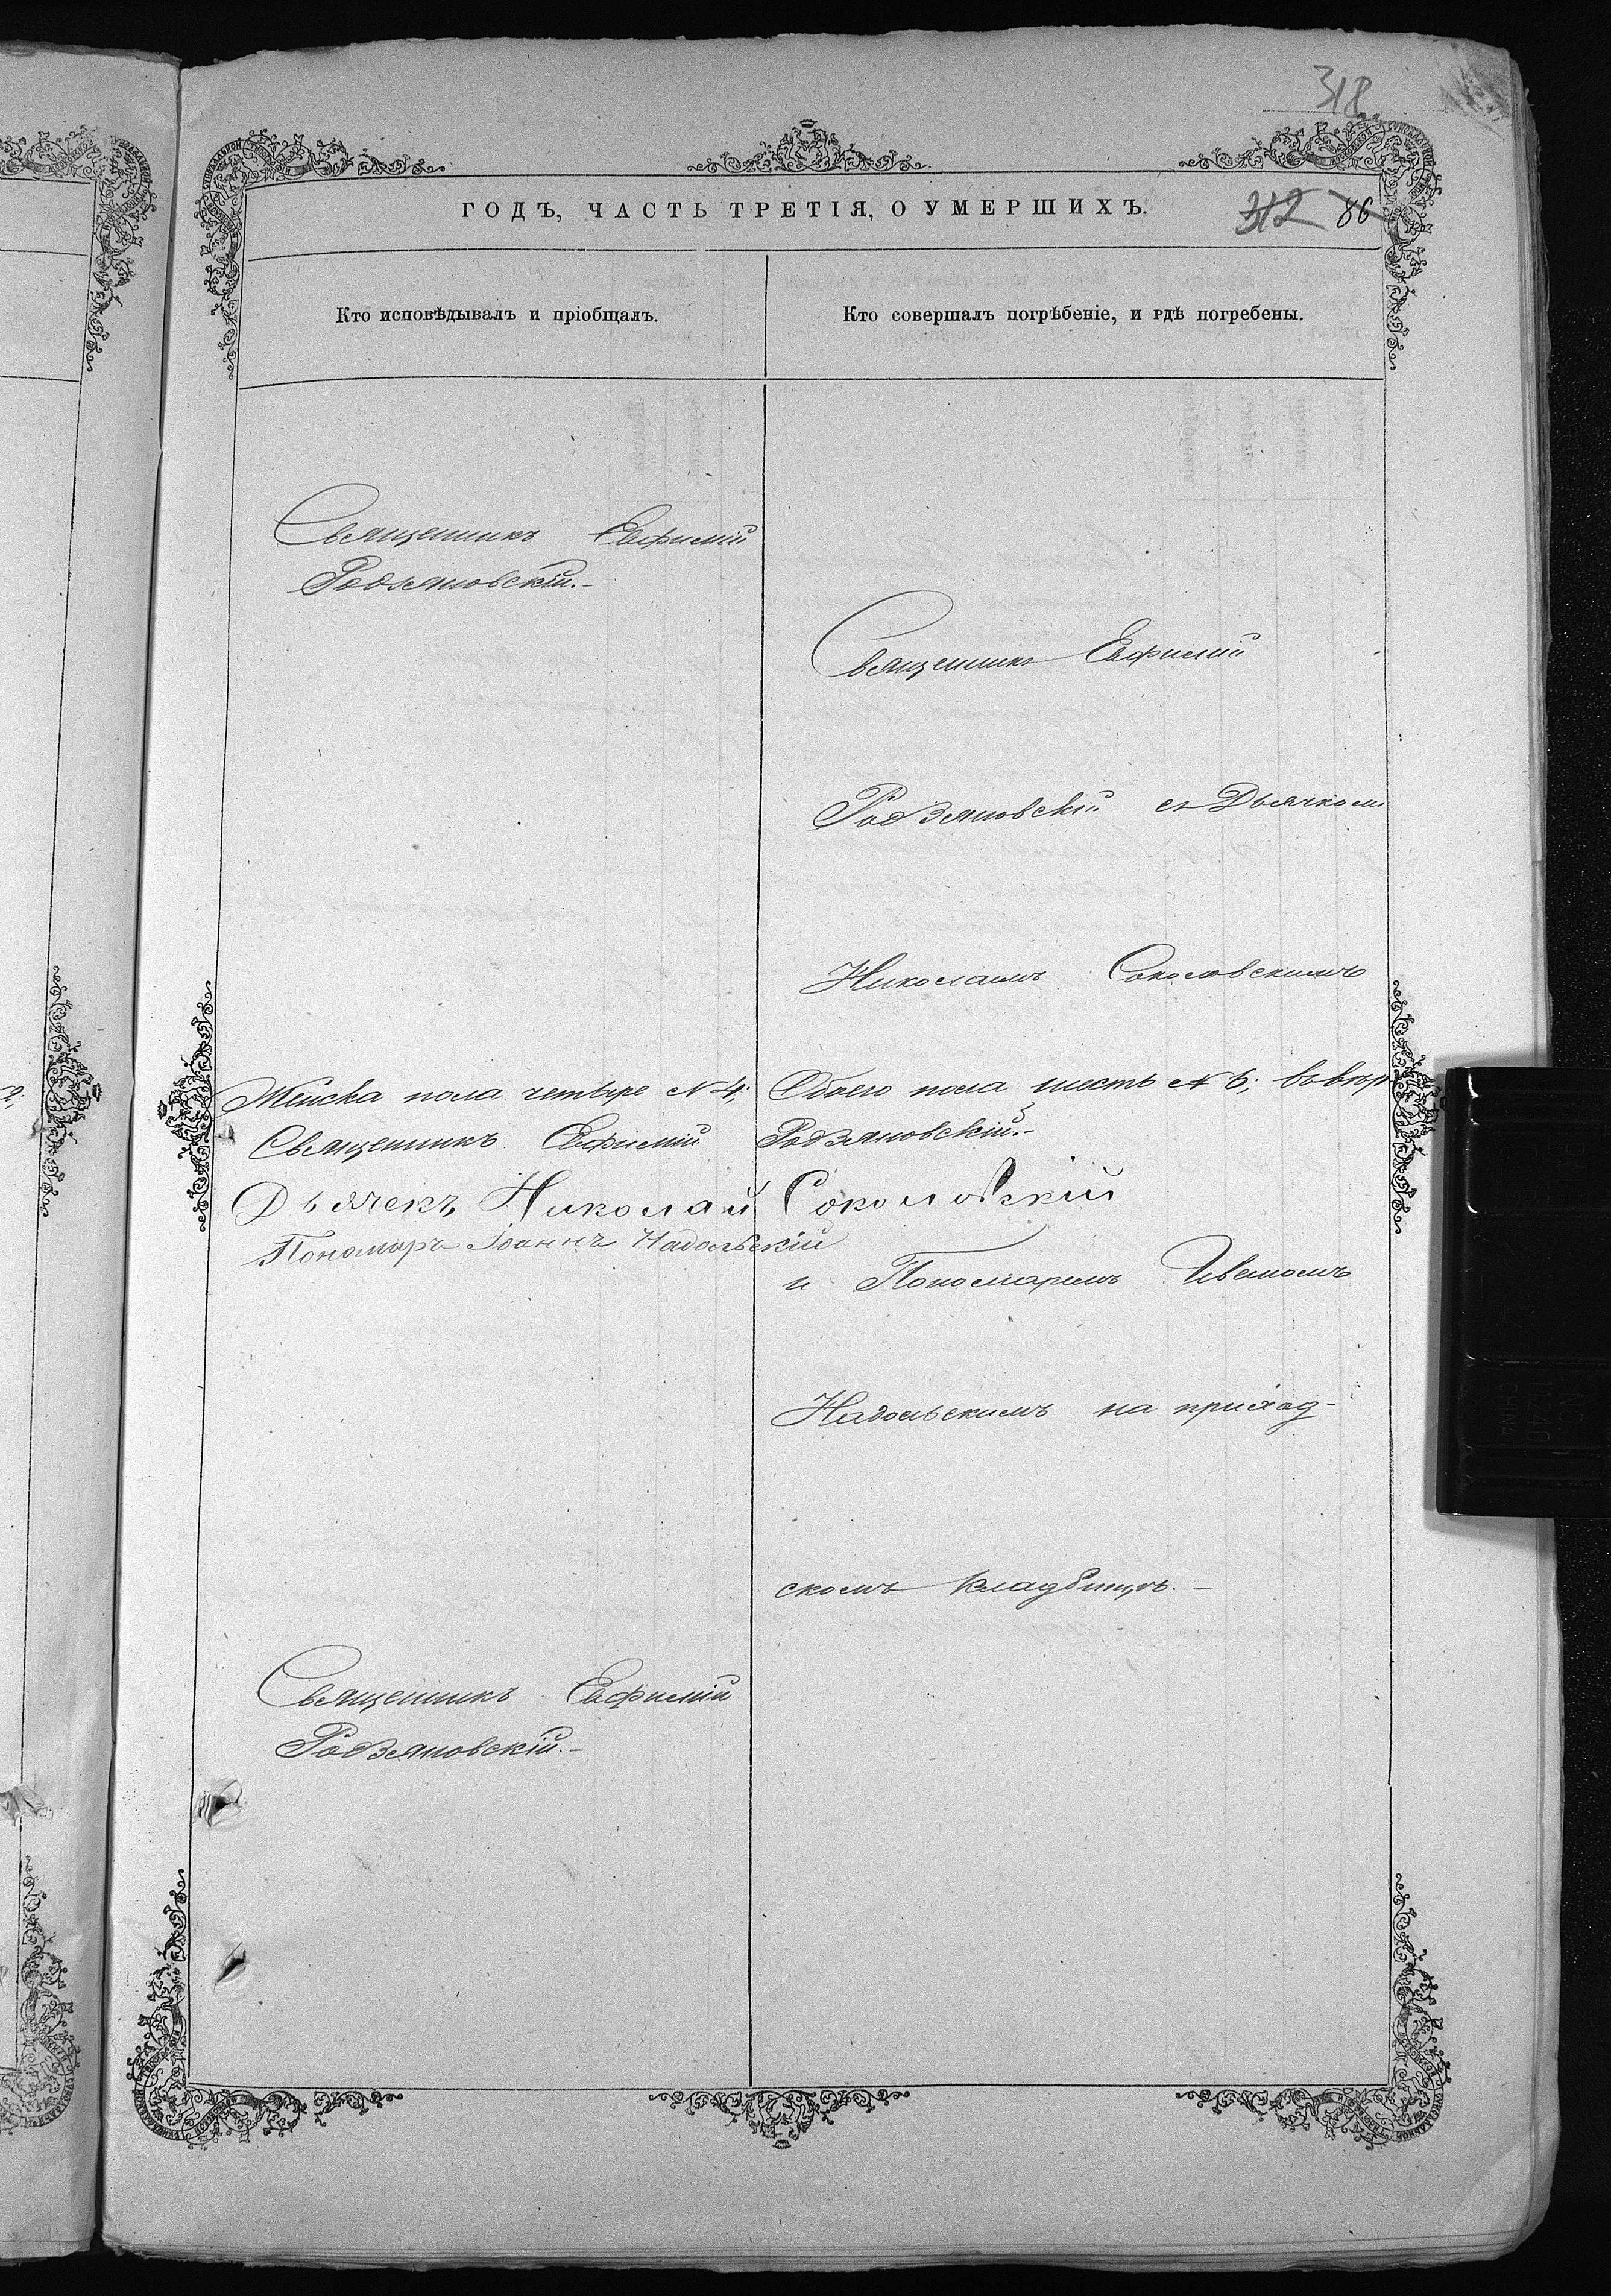 318
ГОДЪ, ЧАСТЬ ТРЕТІЯ, О УМЕРШИХЪ.
312 86
Кто исповѣдывалъ и пріобщалъ.
Кто совершалъ погрѣбеніе, и гдѣ погребены.
Священникъ Евфимій
Родзяновскій.-
Священникъ Евфимій
Родзяновскій съ Дьячкомъ
Николаемъ Соколовскимъ
Женска пола четыре № 4; Обоего пола шесть № 6;
Священникъ Евфимій Родзяновскій.-
Дьячекъ Николай Соколовскій
Пономарь Іоаннъ Надольскій
и Пономаремъ Иваномъ
Надольскимъ на приход-
скомъ кладбищѣ.-
Священникъ Евфимій
Родзяновскій.-